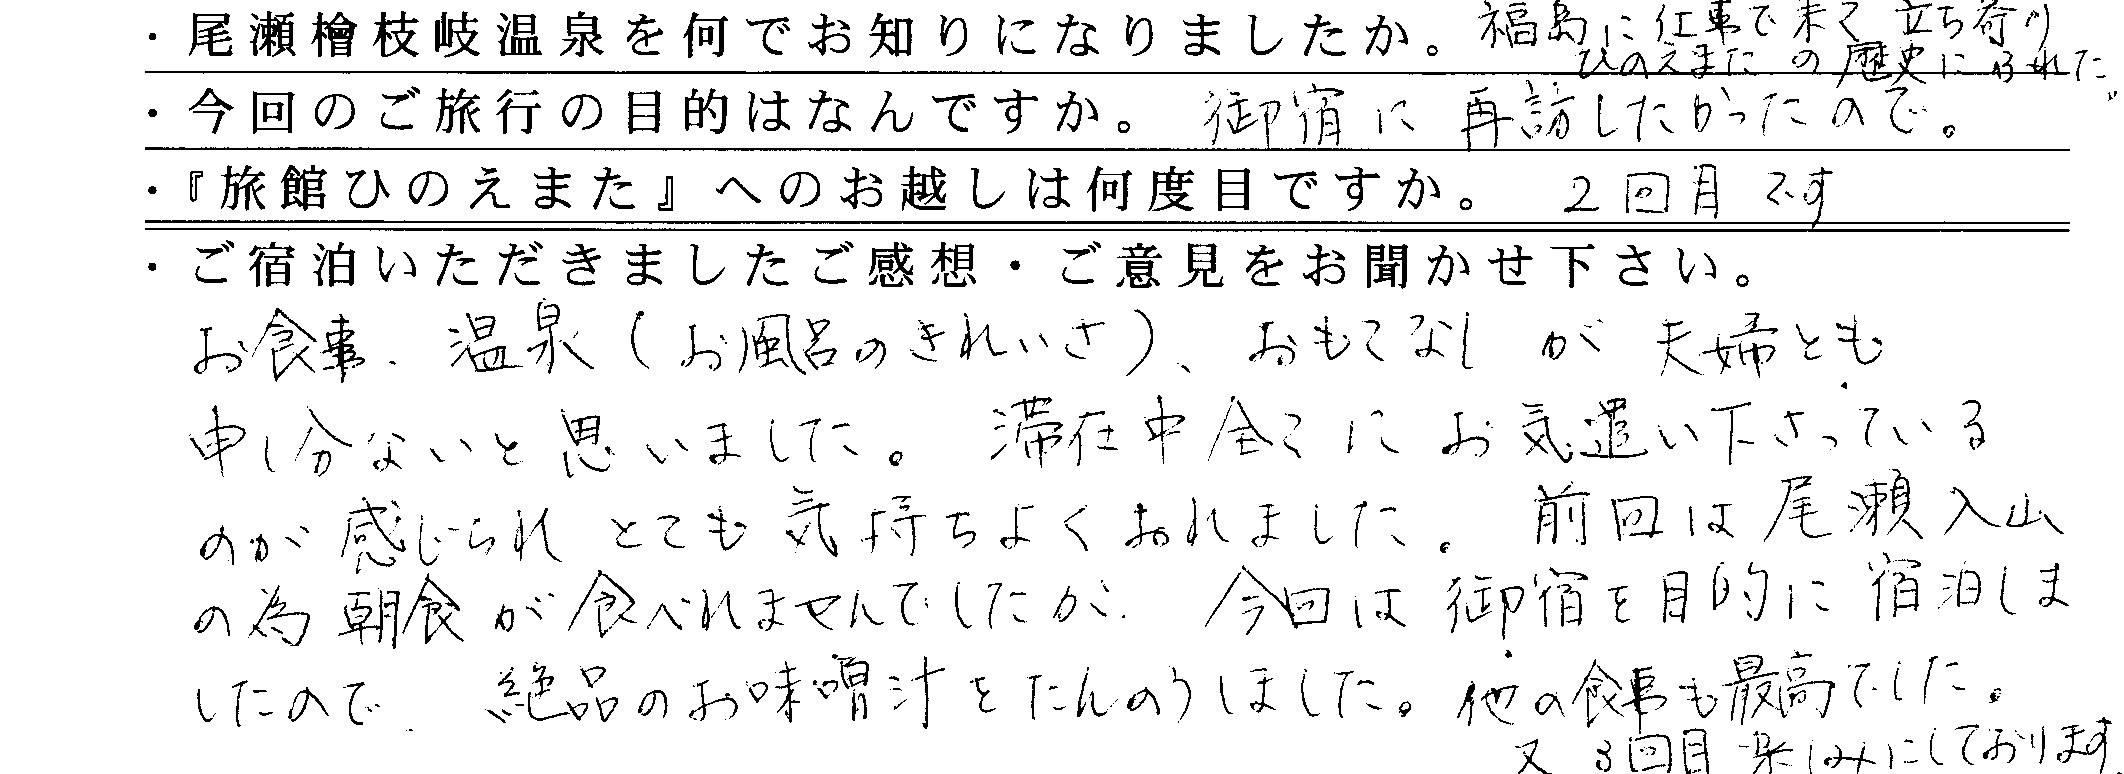 ・尾瀬檜枝岐温泉を何でお知りになりましたか。福島に仕事で来て立ち寄り
ひのえまたの歴史にふれた。
・今回のご旅行の目的はなんですか。御宿に再訪したかったので。
・『旅館ひのえまた』へのお越しは何度目ですか。2回目です
・ご宿泊いただきましたご感想・ご意見をお聞かせ下さい。
お食事、温泉(お風呂のきれいさ)、おもてなしが夫婦とも
申し分ないと思いました。滞在中全てにお気遣い下さっている
のが感じられとても気持ちよくおれました。前回は尾瀬入山
の為朝食が食べれませんでしたが、今回は御宿を目的に宿泊しま
したので、絶品のお味噌汁をたんのうしました。他の食事も最高でした。
又3回目楽しみにしております。